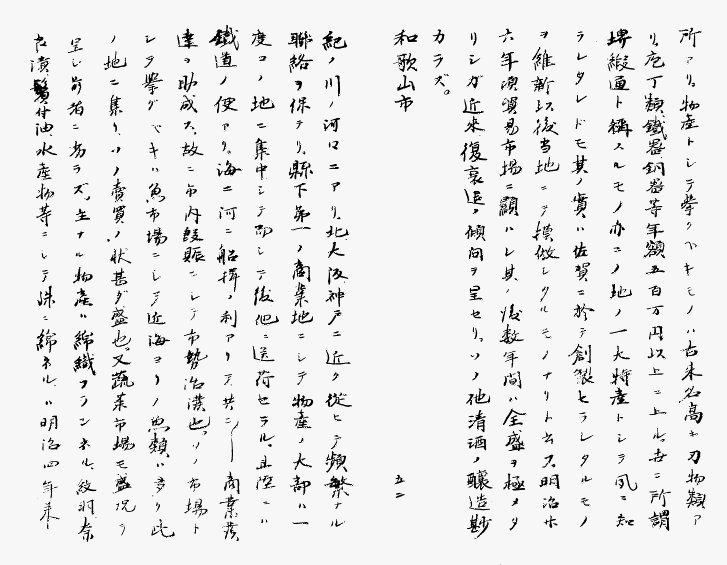 所アリ、物産トシテ擧クヘキモノハ古来名高キ刃物類ア
リ、庖丁類、鐵器、銅器等年額五百万円以上ニ上ル、世ニ所謂
堺緞通ト稱スルモノ亦コノ地ノ一大特産トシテ夙ニ知
ラレタレドモ其ノ實ハ佐賀ニ於テ創製セラレタルモノ
ヲ維新以後当地ニテ模倣シタルモノナリト云フ、明治廿
六年頃貿易市場ニ顯ハレ其ノ後数年間ハ全盛ヲ極メタ
リシガ近来復衰退ノ傾向ヲ呈セリ、ソノ他清酒ノ釀造尠
カラズ。
和歌山市
五二
紀ノ川ノ河口ニアリ、北大阪神戸ニ近ク從ヒテ頻繁ナル
聯絡ヲ保テリ、縣下第一ノ商業地ニシテ物産ノ大部ハ一
度コノ地ニ集中シテ而シテ後他ニ送荷セラル、且陸ニハ
鐵道ノ便アリ、海ニ河ニ船楫ノ利アリテ共ニ商業發
達ヲ助成ス、故ニ市内殷賑ニシテ市勢活溌也、ソノ市場ト
シテ擧グベキハ魚市場ニシテ近海ヨリノ魚類ハ多ク此
ノ地ニ集リ、ソノ賣買ノ状甚ダ盛也、又蔬菜市場モ盛況ヲ
呈シ前者ニ劣ラズ、主ナル物産ハ綿織フランネル、紋羽、奈
良漬、鬢付油、水産物等ニシテ殊ニ綿ネルハ明治四年